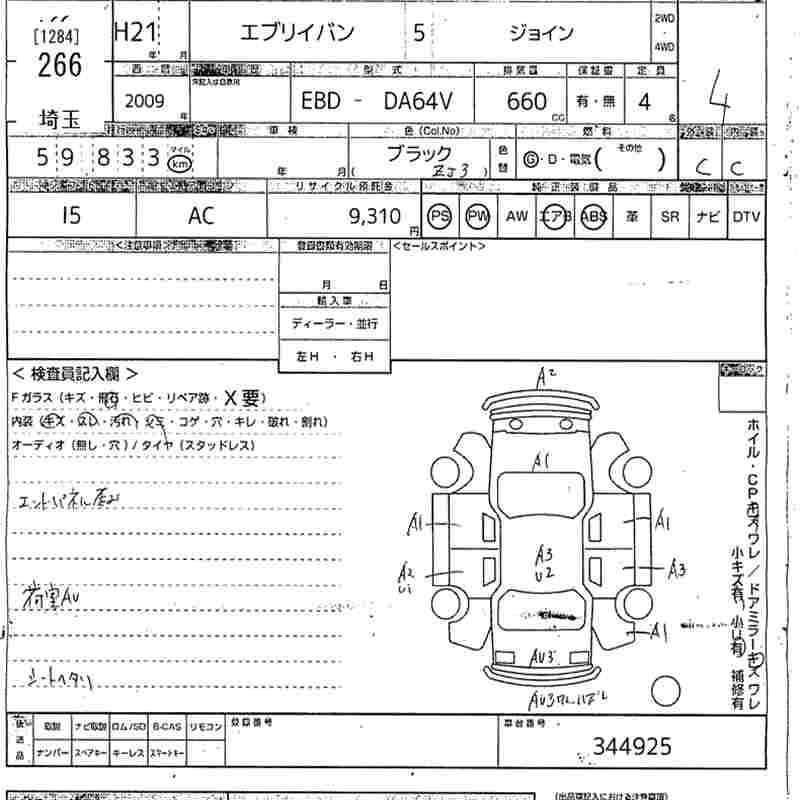 [1284]
266
埼玉
H21 年 月
エブリイバン
5
ジョイン
2WD
・
4WD
2009 年
型式
EBD - DA64V
排気量
660 CC
保証書
有・無
定員
4 名
4
59833 マイル km
車検
年 月
色 (Col.No)
ブラック
( ZJ3 )
色替
燃料
Ⓖ・D・電気 ( その他 )
C C
I5
AC
リサイクル預託金
9,310 円
純正装備品
PS PW AW エアB ABS 革 SR ナビ DTV
<注意事項>
登録書類有効期限
月 日
輸入車
ディーラー・並行
左H ・ 右H
<セールスポイント>
< 検査員記入欄 >
Fガラス (キズ・飛石・ヒビ・リペア跡・X要)
内装 (キズ・スレ・汚れ・シミ・コゲ・穴・キレ・破れ・割れ)
オーディオ (無し・穴) / タイヤ (スタッドレス)
エンドパネル歪み
荷室AU
シートヘタリ
A2
A1
A1
A1
A3
U2
A2
U1
A3
A1
AU3
AU3
ホイル・CPキズワレ / ドアミラーキズワレ
小キズ有 小U有 補修有
後送品
取説 ナビ取説 ロム/SD B-CAS リモコン
ナンバー スペアキー キーレス スマートキー
登録番号
車台番号
344925
(出品票記入における注意事項)